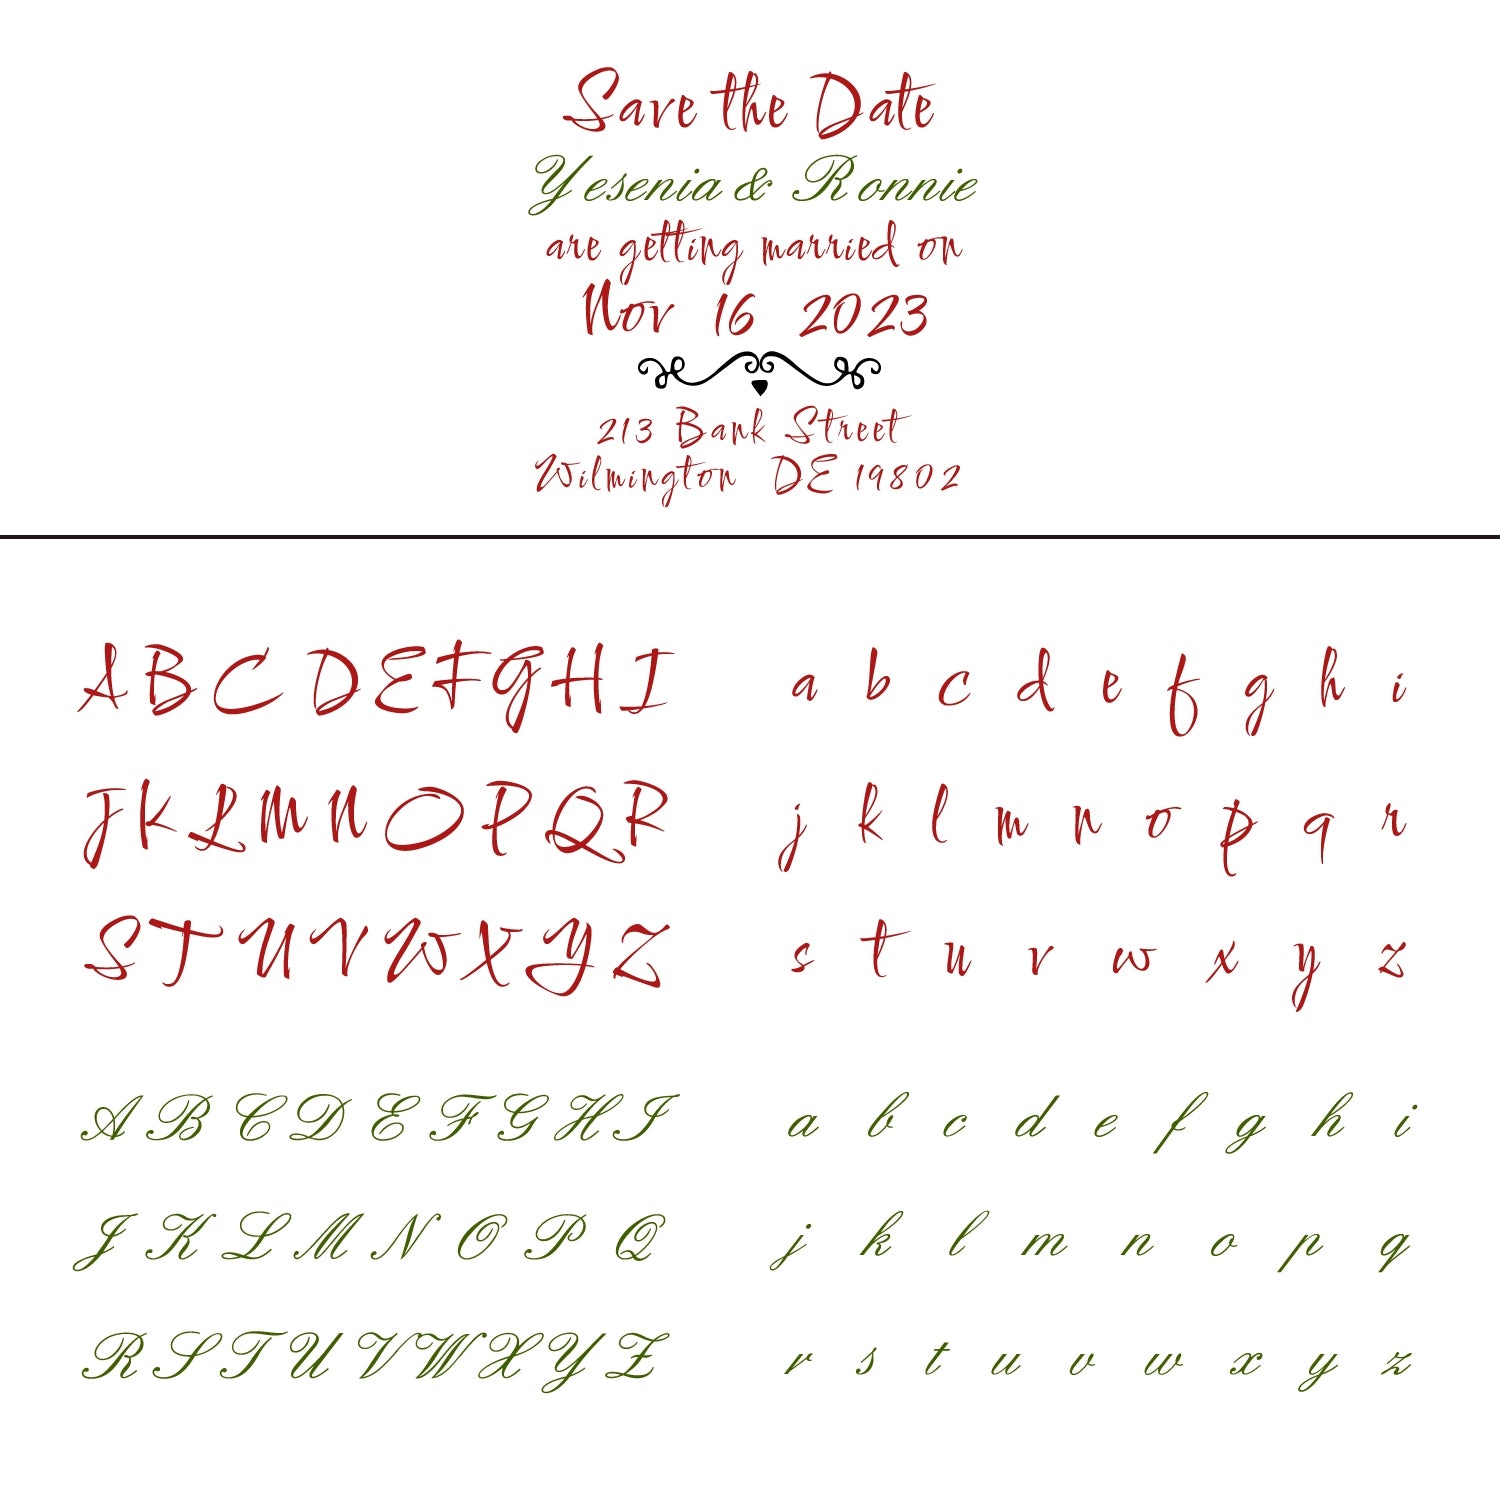 Save the Date
Yesenia & Ronnie
are getting married on
Nov 16 2023
213 Bank Street
Wilmington DE 19802
A B C D E F G H I
a b c d e f g h i
J K L M N O P Q R
j k l m n o p q r
S T U V W X Y Z
s t u v w x y z
A B C D E F G H I
a b c d e f g h i
J K L M N O P Q
j k l m n o p q
R S T U V W X Y Z
r s t u v w x y z